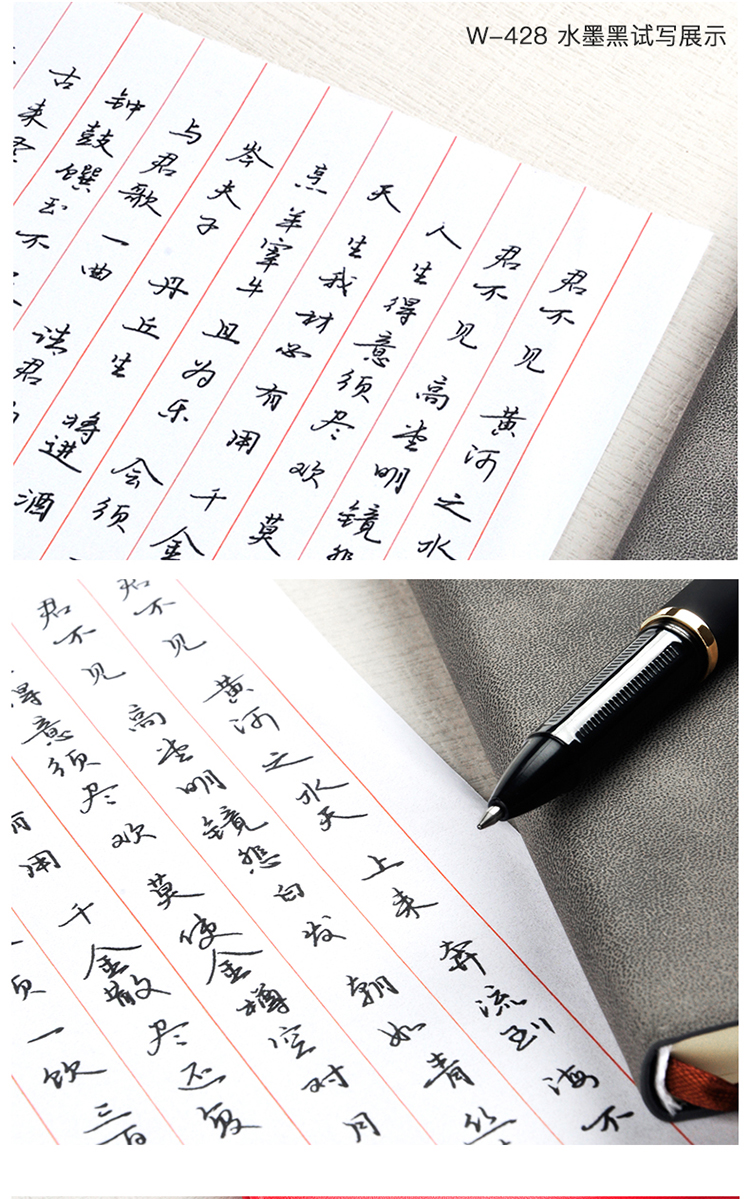 W-428 水墨黑试写展示
君不见 黄河之水
君不见 高堂明镜悲
人生得意须尽欢 莫
天生我材必有用 千金
烹羊宰牛且为乐 会须
岑夫子 丹丘生 将进酒
与君歌一曲 请君
钟鼓馔玉不
古来圣
君不见 黄河之水天上来 奔流到海不
君不见 高堂明镜悲白发 朝如青丝
得意须尽欢 莫使金樽空对月
有用 千金散尽还复
须一饮三百